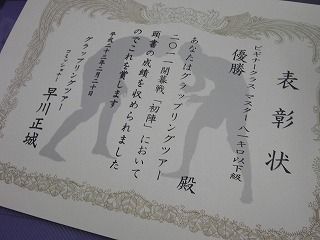 表彰状
ビギナークラス マスター 八一キロ以下級
優勝
殿
あなたはグラップリングツアー
二〇一一開幕戦「初陣」において
頭書の成績を収められました
のでこれを賞します
平成二十三年二月二十日
グラップリングツアー
早川正城